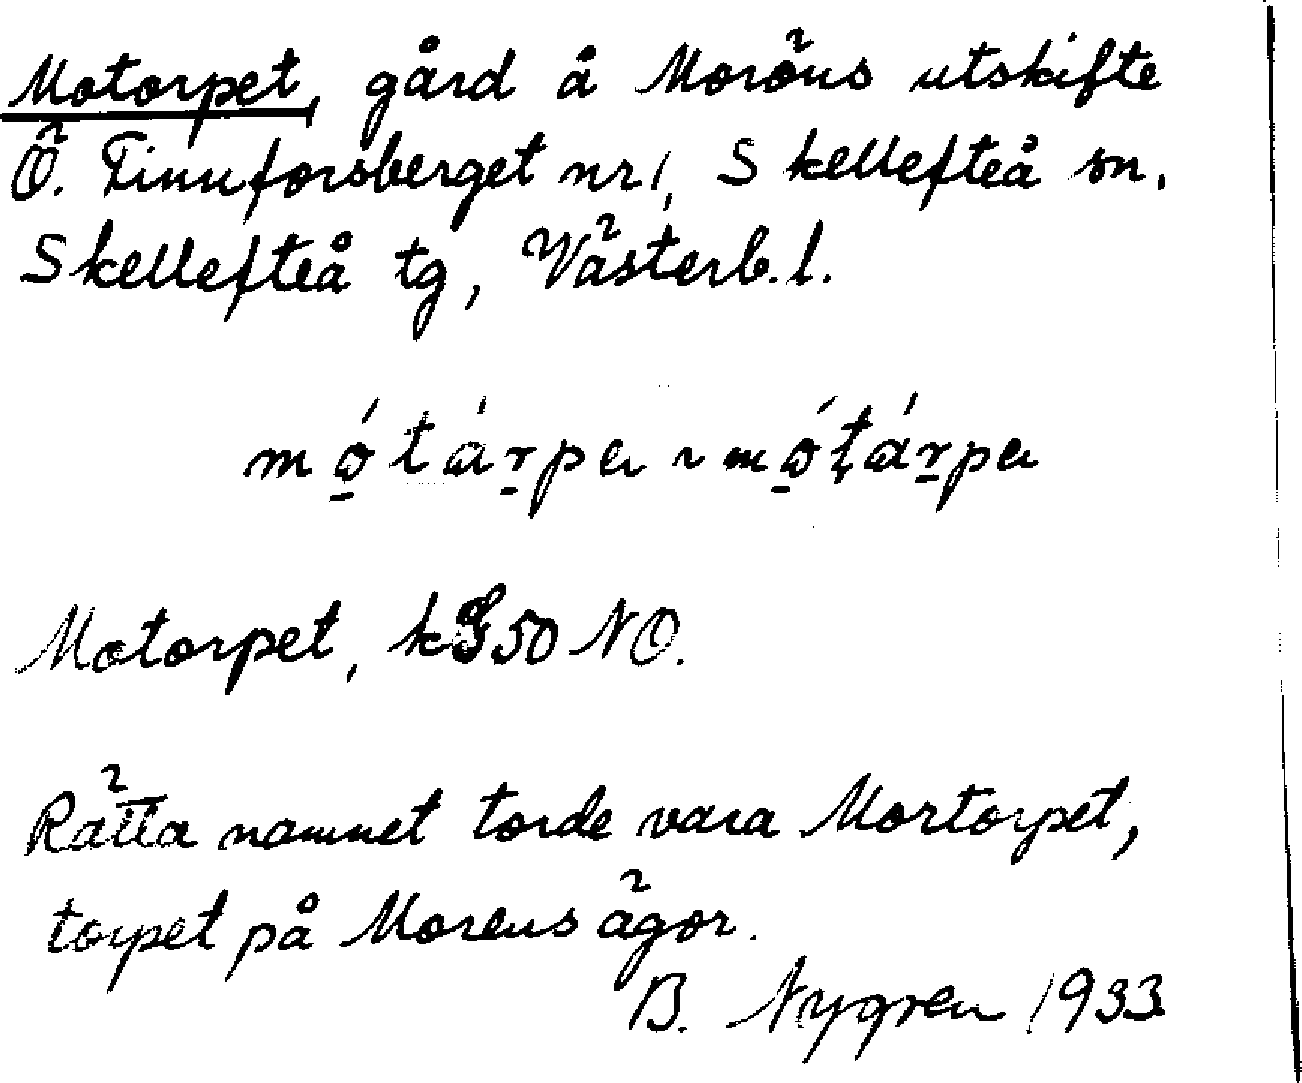 Motorpet, gård å Moröns utskifte
Ö. Finnforsberget nr 1, Skellefteå sn.
Skellefteå tg, Västerb. l.
mó̱tárpa ~ mó̱ţárpa
Motorpet, k 50 NO.
Rätta namnet torde vara Mortorpet,
torpet på Morens ägor.
B. Nygren 1933